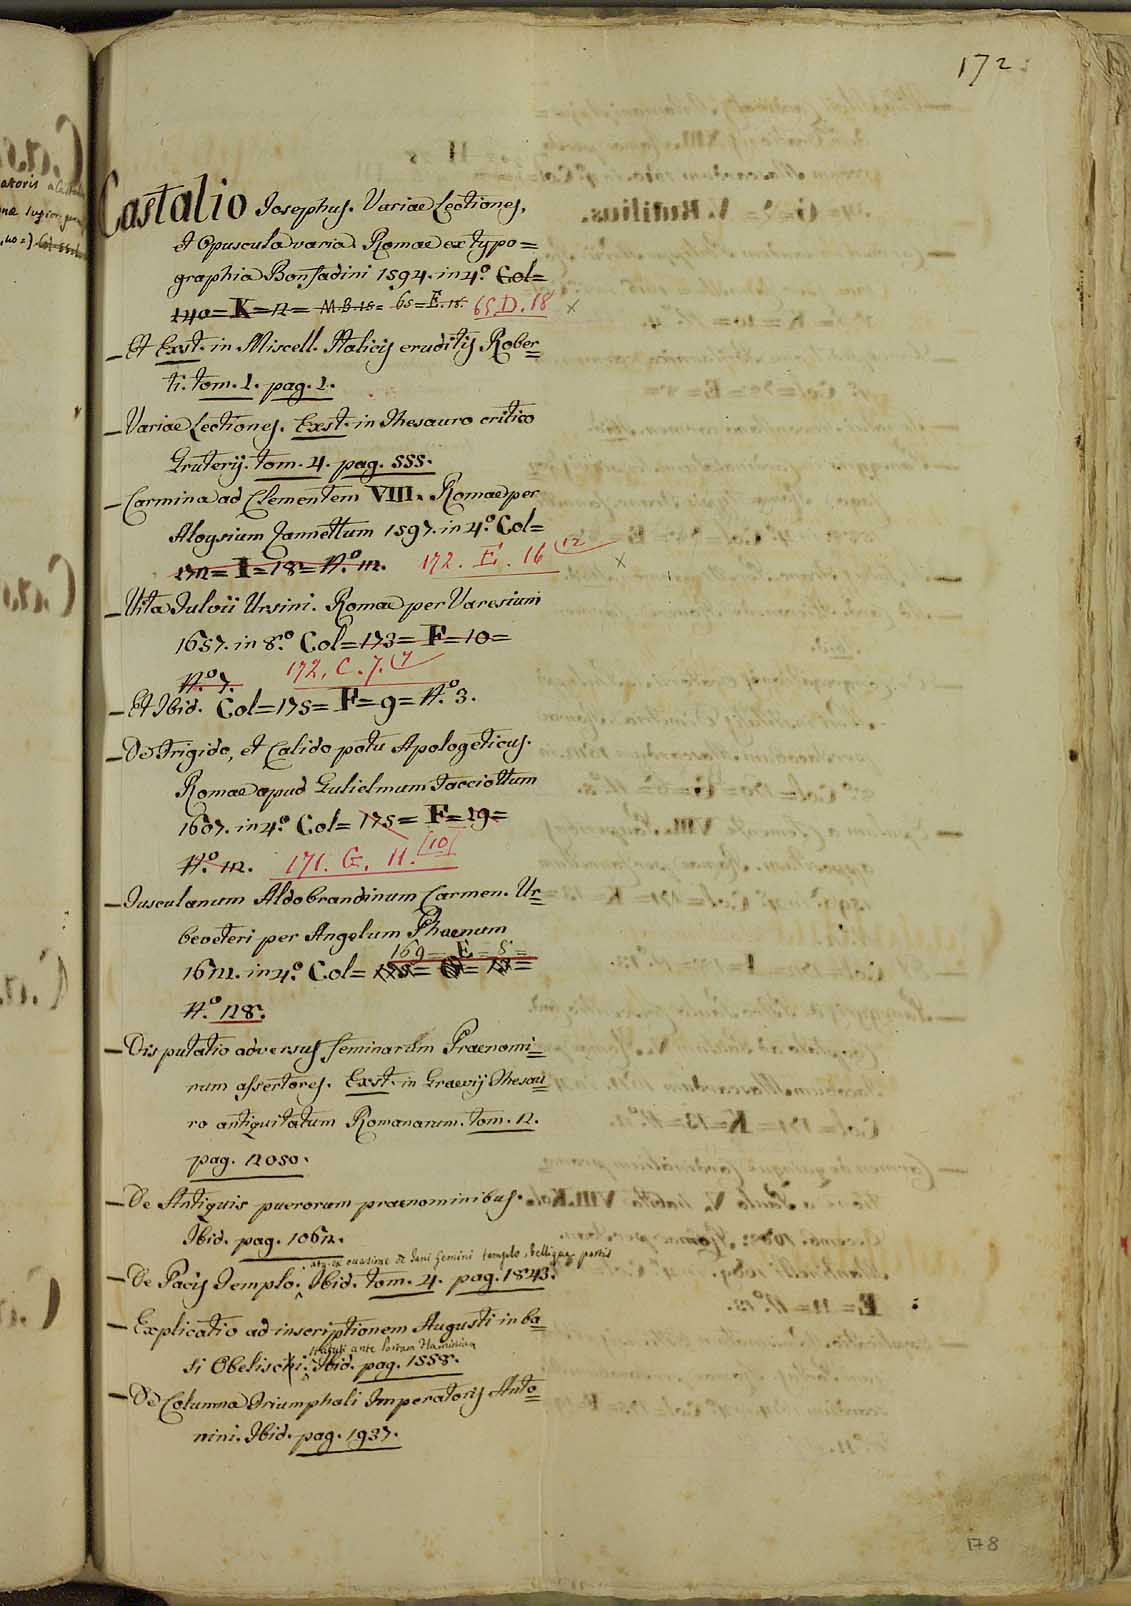 172.
Castalio Josephus. Variae Lectiones,
et Opuscula varia. Romae ex typo=
graphia Bonfadini 1594. in 4.° Col=
140=K=12= M.B.18= 65=E.18. 65.D.18 x
_Et Exst. in Miscell. Italicis eruditis Rober=
ti. tom. 1. pag. 1.
_Variae Lectiones. Exst. in Thesauro critico
Gruterij. tom. 4. pag. 555.
_Carmina ad Clementem VIII. Romae per
Aloysium Zannettum 1597. in 4.° Col=
172=I=18=N.° 12. 172. E. 16 (12 x
_Vita Fulvii Ursini. Romae per Varesium
1657. in 8.° Col=173=F=10=
N.° 7. 172. C. 7. (7
_Et Ibid. Col=175=F=9=N.° 3.
_De Frigido, et Calido potu Apologeticus.
Romae apud Gulielmum Facciottum
1607. in 4.° Col=175=F=19=
N.° 12. 171. G. 11. (10)
_Tusculanum Aldobrandinum Carmen. Ur=
beveteri per Angelum Phaenum
169=E=8=
1612. in 4.° Col=
N.° 128.
_Disputatio adversus feminarum Praenomi=
num assertores. Exst. in Graevij Thesau=
ro antiquitatum Romanarum. tom. 12.
pag. 12050.
_De Antiquis puerorum praenominibus.
Ibid. pag. 1062.
atq. ex occasione de Jani Gemini templo, bellique portis
_De Pacis Templo. Ibid. tom. 4. pag. 1843.
_Explicatio ad inscriptionem Augusti in ba=
statuti ante portam Flaminiam
si Obelischi. Ibid. pag. 1558.
_De Columna Triumphali Imperatoris Anto=
nini. Ibid. pag. 1937.
178